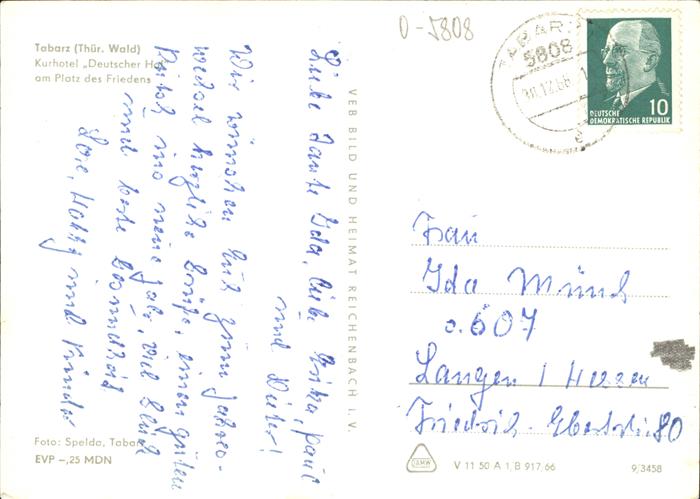 Tabarz (Thür. Wald)
Kurhotel „Deutscher Hof"
am Platz des Friedens
Liebe Tante Ida, liebe Erika, Paul
und Dieter!
Wir wünschen Euch zum Jahres-
wechsel herzliche Grüße, einen guten
Rutsch ins neue Jahr, viel Glück
und beste Gesundheit
und Kinder
Foto: Spelda, Tabarz
EVP –,25 MDN
VEB BILD UND HEIMAT REICHENBACH I. V.
0-5808
TABARZ
5808
DEUTSCHE
DEMOKRATISCHE REPUBLIK
10
Frau
Ida Münch
6.607
Langen / Hessen
Friedrich-Ebertstr. 80
DAMW
V 11 50 A 1 B 917/66
9/3458